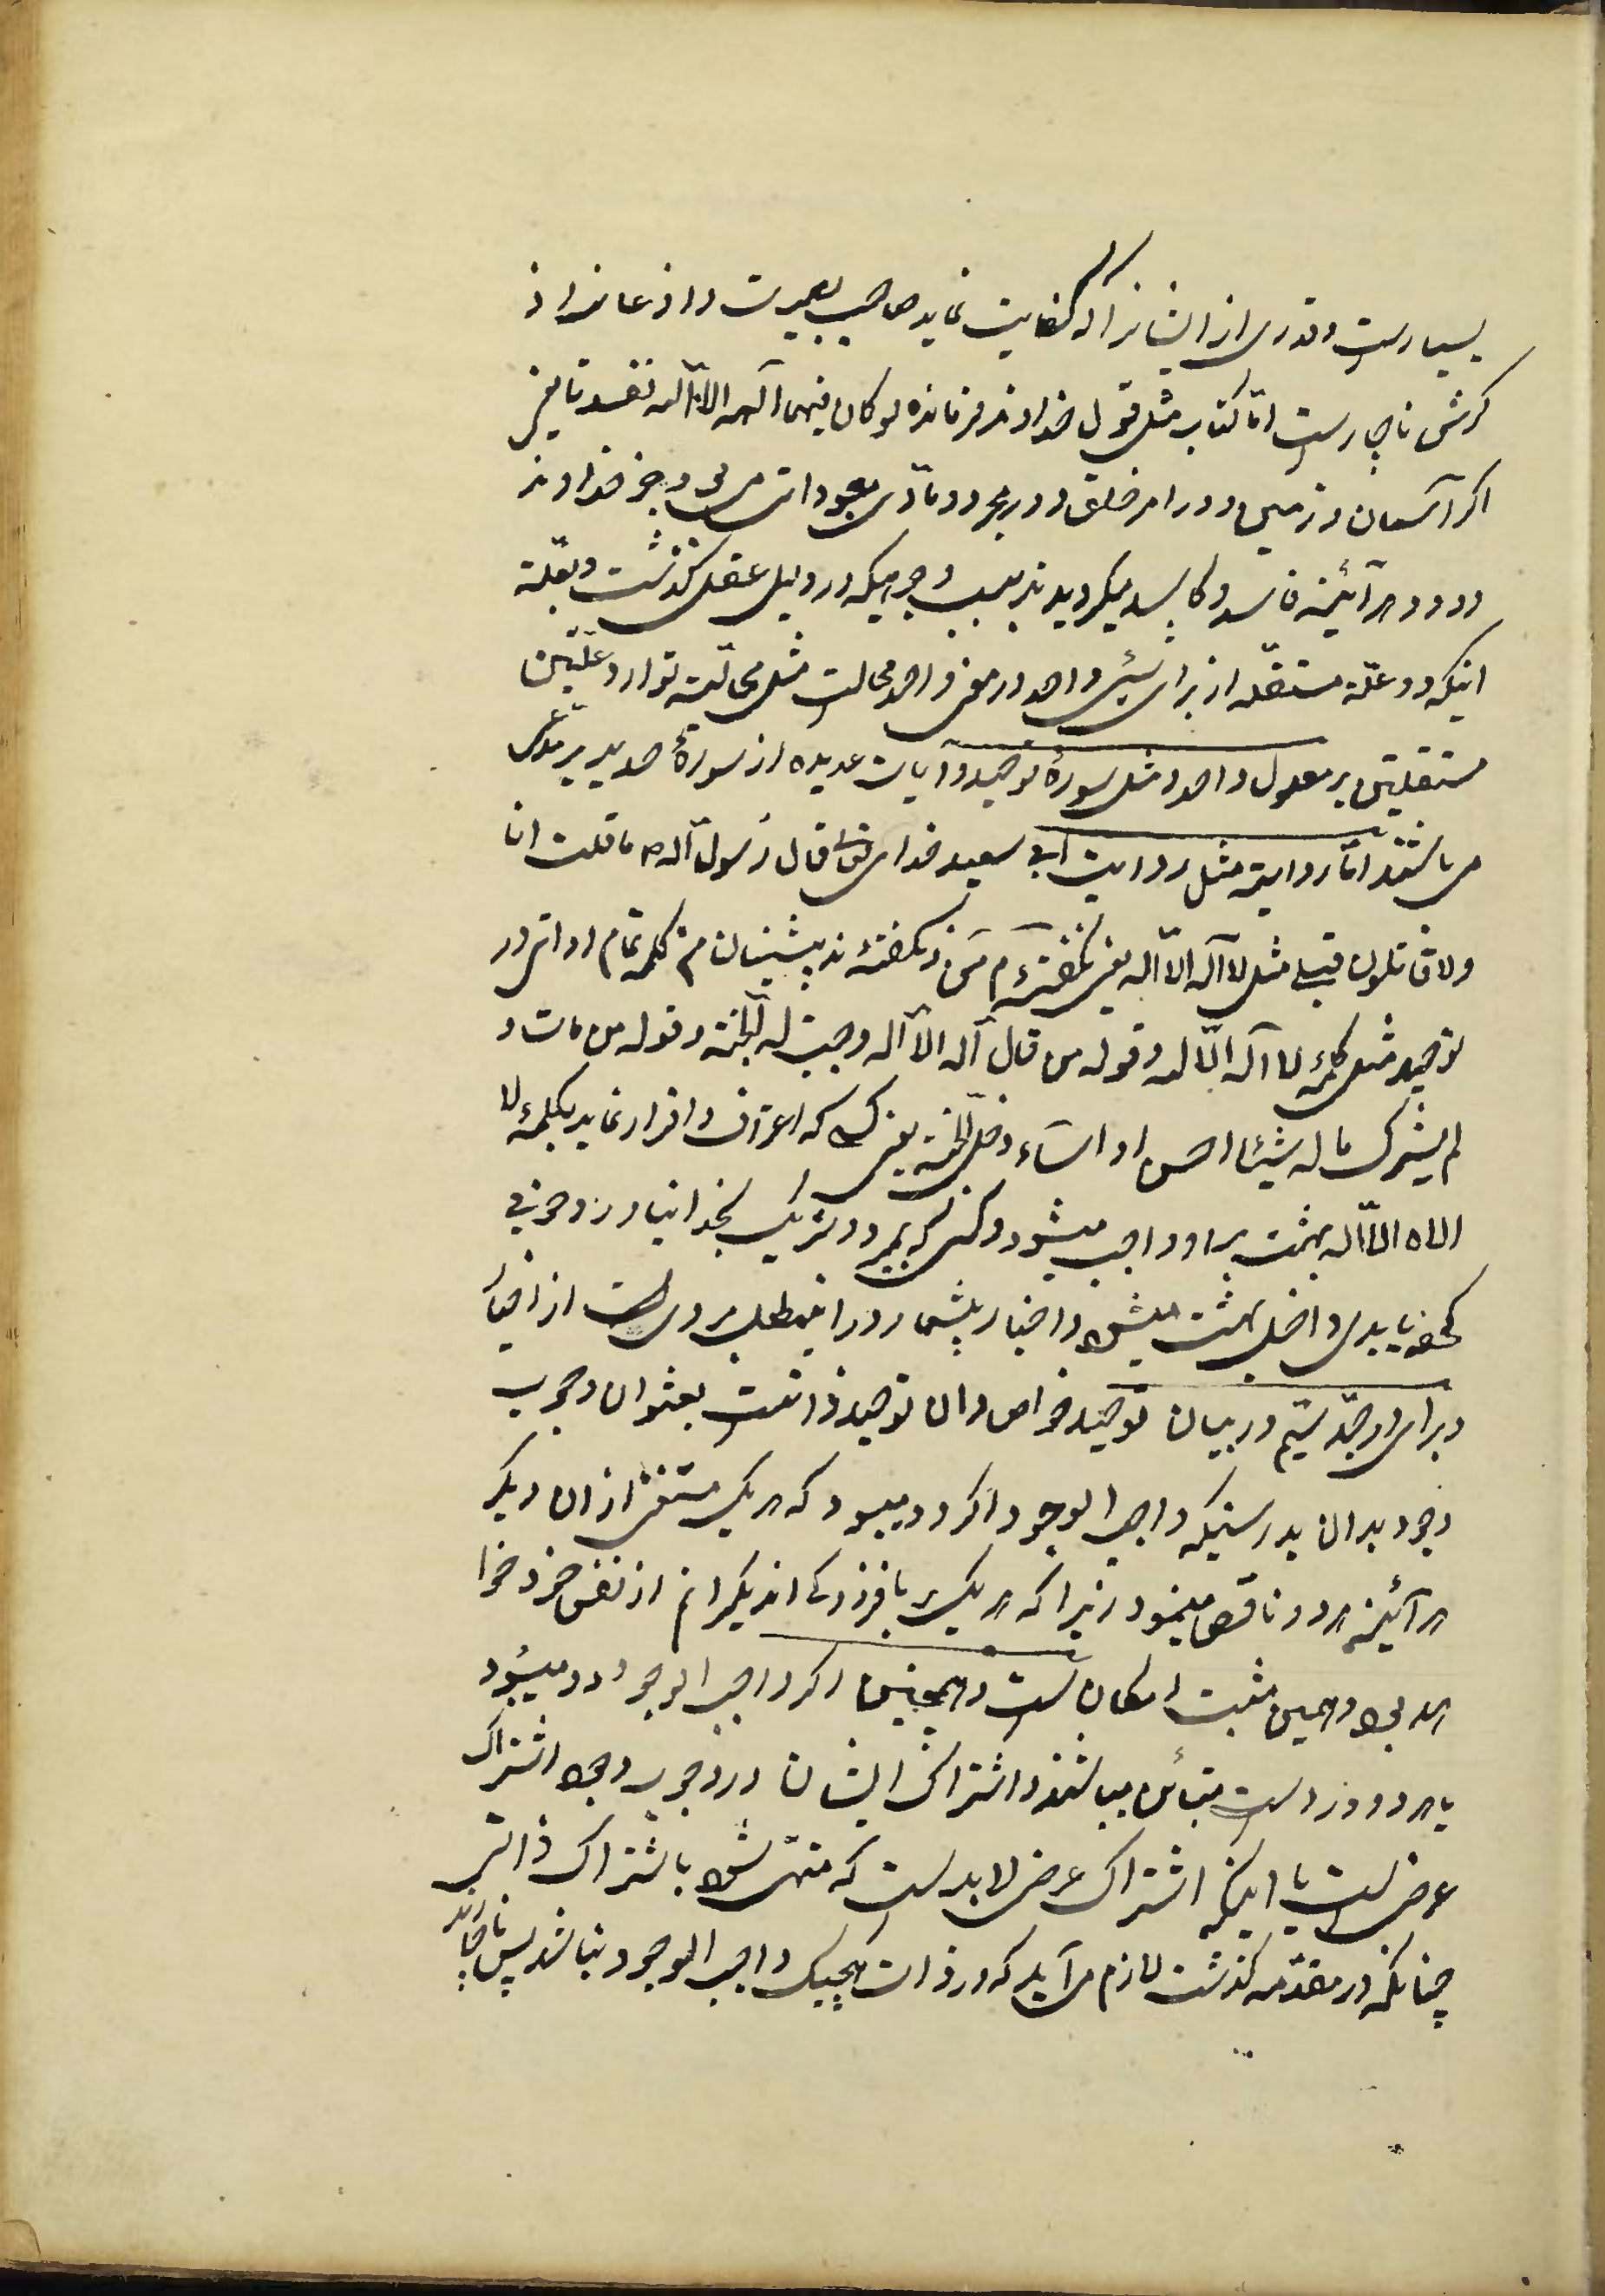 بسیارست و قدری از ایشانرا که کفایت نماید صاحب بصیرت و اذعانرا ذ
کرش ناچارست اما کتاب مثل قول خداوند فرمانده لو کان فیهما آلهه الا الله لفسدتا یعنی
اکر آسمان و زمین و در امر خلق و در مجرد و مادی معبودات می بود جز خداوند
هر آئینه فاسد و کاسد میکردیدند بسبب وجهیکه در دلیل عقل کذشت و بعلة
اینکه دو علة مستقله از برای شیئ واحد در معنی واحد محالست مثل محالیة توارد علتین
مستقلیتن بر معلول واحد و مثل سورهٔ توحید و آیات عدیده از سورهٔ حدید بر مدعی
می باشند اما روایة مثل روایت ابی سعید قال رسول الله ص ما قلت انا
ولا قائلون قبلی مثل لا اله الا الله یعنی نکفته‌ام من و نکفته‌اند پیشینیان من کلمه تمام در
توحید مثل کلمه لا اله الا الله و قوله من قال لا اله الا الله وجبت له الجنة و قوله من مات و
لم یشرک بالله شیئا احسن او اساء دخل الجنة یعنی کسی که اعتراف و اقرار نماید بکلمهٔ لا
اله الا الله بهشت بر او واجب میشود و کسی که بمیرد و شریک بخدا نیاورد و خوبی
کند یا بدی داخل بهشت میشود و اخبار بیشمار در اینمطلب مرویست از اخیار
در بیان توحید خواص و ان توحید ذاتست بعنوان وجوب
وجود بدان بدرستیکه واجب الوجود اکر دو میبود که هر یک مستغنی از ان دیکر
هر آئینه هر دو ناقص مینمود زیرا که هر یک از نفس خود
بود و همین مثبت امکان است و همچنین اکر واجب الوجود دو میبود
یا هر دو متبائن میباشند و اشتراک ایشان در وجوب وجود اشتراک
عرضی است یا اینکه اشتراک عرض لابد است که منتهی شود باشتراک ذاتی
چنانکه در مقدمه کذشت لازم می آید که در ذات هیچیک واجب الوجود نباشد پس ناچار